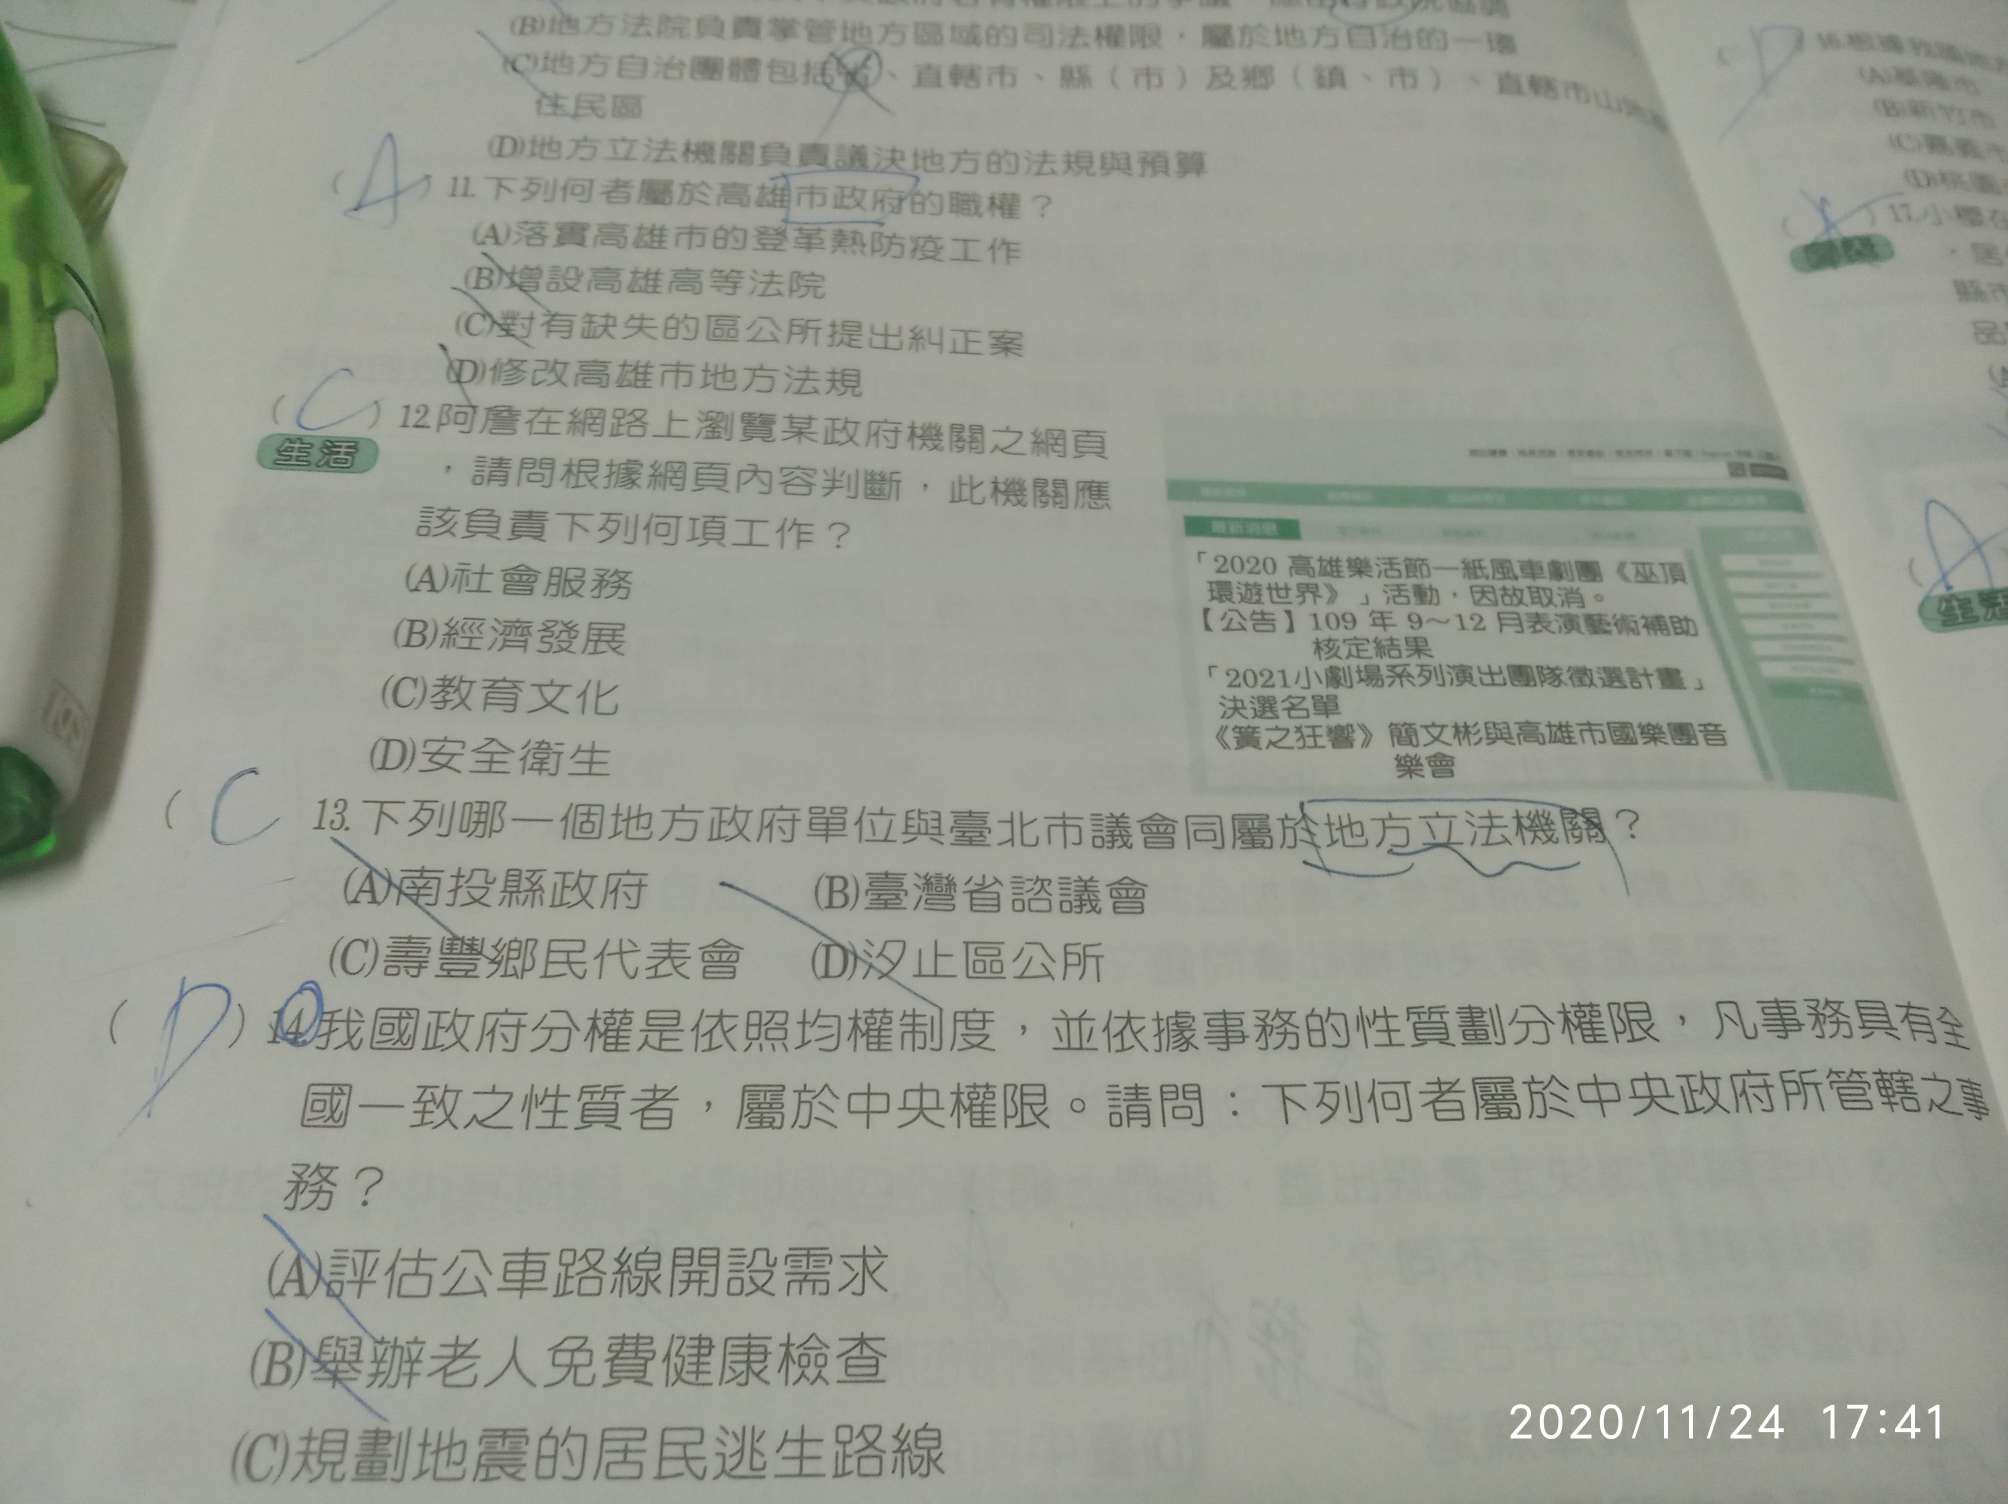 (B)地方法院負責掌管地方區域的司法權限，屬於地方自治的一環
(C)地方自治團體包括省、直轄市、縣（市）及鄉（鎮、市）、直轄市山地
住民區
(D)地方立法機關負責議決地方的法規與預算
(A) 11.下列何者屬於高雄市政府的職權？
(A)落實高雄市的登革熱防疫工作
(B)增設高雄高等法院
(C)對有缺失的區公所提出糾正案
(D)修改高雄市地方法規
(C) 12.阿詹在網路上瀏覽某政府機關之網頁
生活
，請問根據網頁內容判斷，此機關應
該負責下列何項工作？
(A)社會服務
(B)經濟發展
(C)教育文化
(D)安全衛生
最新消息
「2020 高雄樂活節—紙風車劇團《巫頂
環遊世界》」活動，因故取消。
【公告】109 年 9～12 月表演藝術補助
核定結果
「2021小劇場系列演出團隊徵選計畫」
決選名單
《簧之狂響》簡文彬與高雄市國樂團音
樂會
(C 13.下列哪一個地方政府單位與臺北市議會同屬於地方立法機關？
(A)南投縣政府 (B)臺灣省諮議會
(C)壽豐鄉民代表會 (D)汐止區公所
(D) 14.我國政府分權是依照均權制度，並依據事務的性質劃分權限，凡事務具有全
國一致之性質者，屬於中央權限。請問：下列何者屬於中央政府所管轄之事
務？
(A)評估公車路線開設需求
(B)舉辦老人免費健康檢查
(C)規劃地震的居民逃生路線
D
16.根據我國地
(A)基隆市
(B)新竹市
(C)嘉義市
(D)桃園
17.小櫻在
，居
縣市
品
A
生活
2020/11/24 17:41